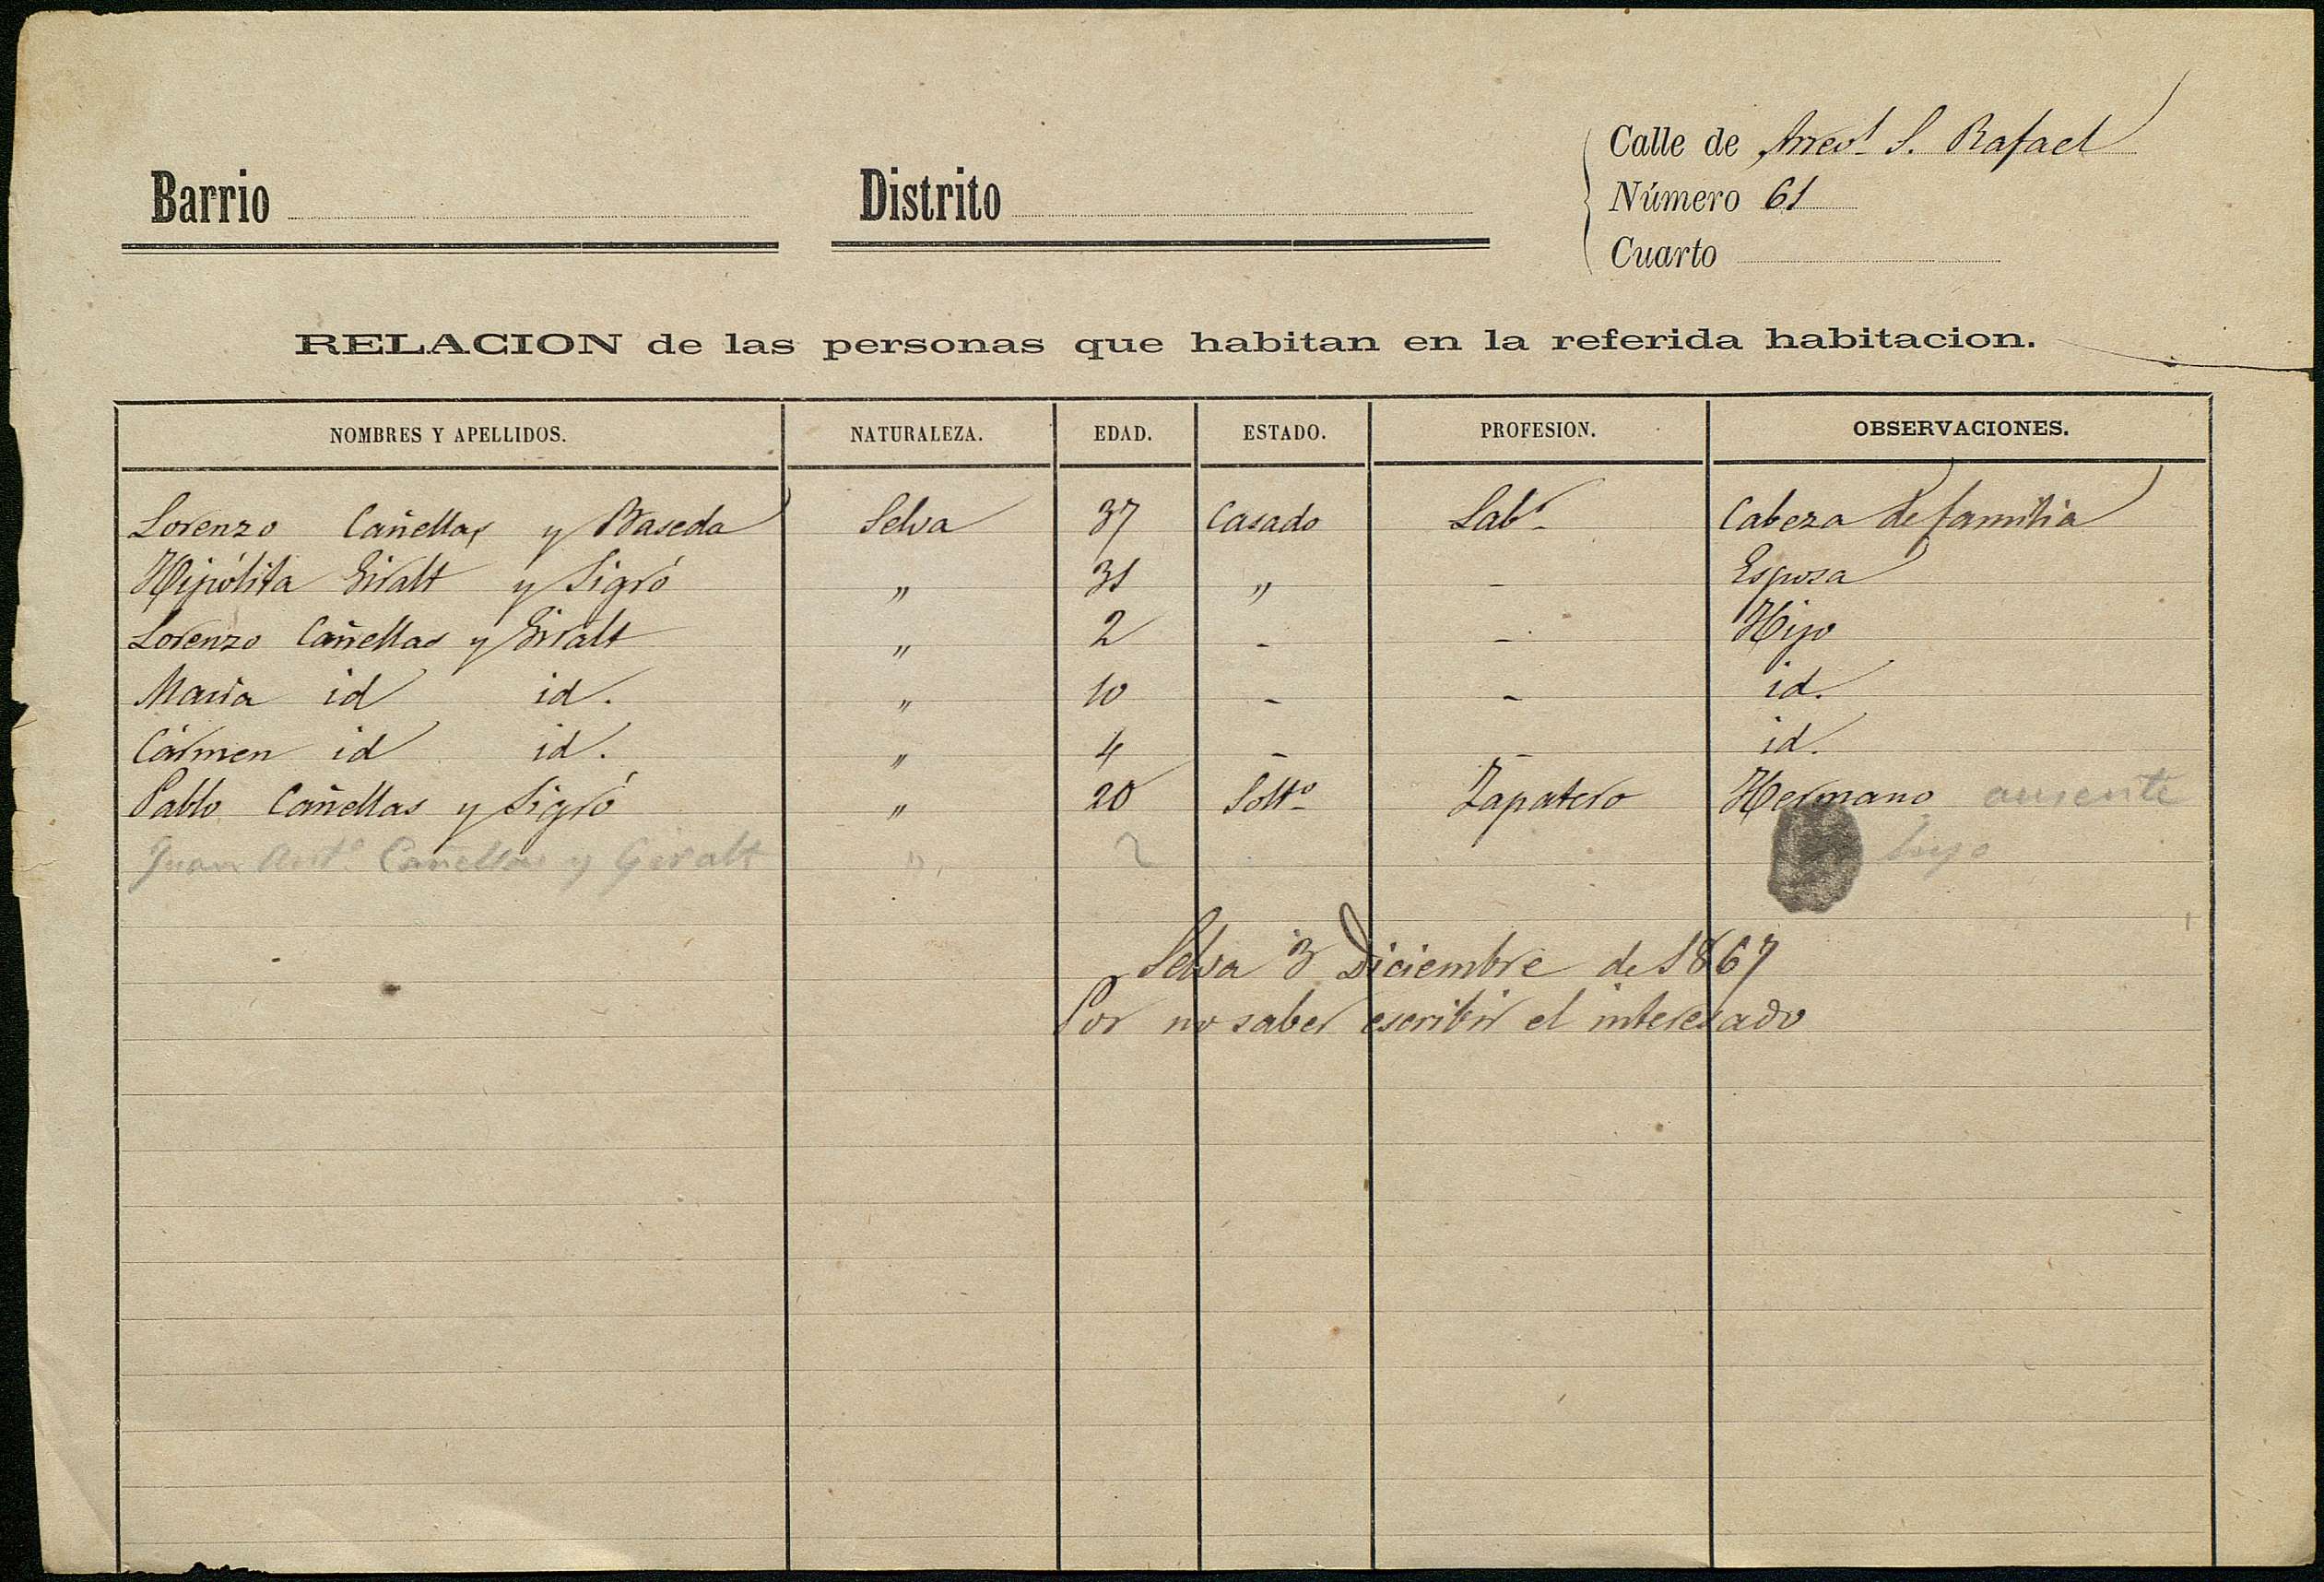 Barrio
Distrito
Calle de Arrev.l S. Rafael
Número 61
Cuarto
RELACION de las personas que habitan en la referida habitacion.
NOMBRES Y APELLIDOS. NATURALEZA. EDAD. ESTADO. PROFESION. OBSERVACIONES.
Lorenzo Cañellas y Baseda Selva 37 Casado Lab.r Cabeza de familia
Hipólita Giralt y Sigró " 31 " - Esposa
Lorenzo Cañellas y Giralt " 2 - - Hijo
Maria id id. " 10 - - id.
Cármen id id. " 4 - - id.
Pablo Cañellas y Sigró " 20 Solt.o Zapatero Hermano ausente
Juan Ant.o Cañellas y Giralt " 2 hijo
Selva 3 Diciembre de 1867
Por no saber escribir el interesado